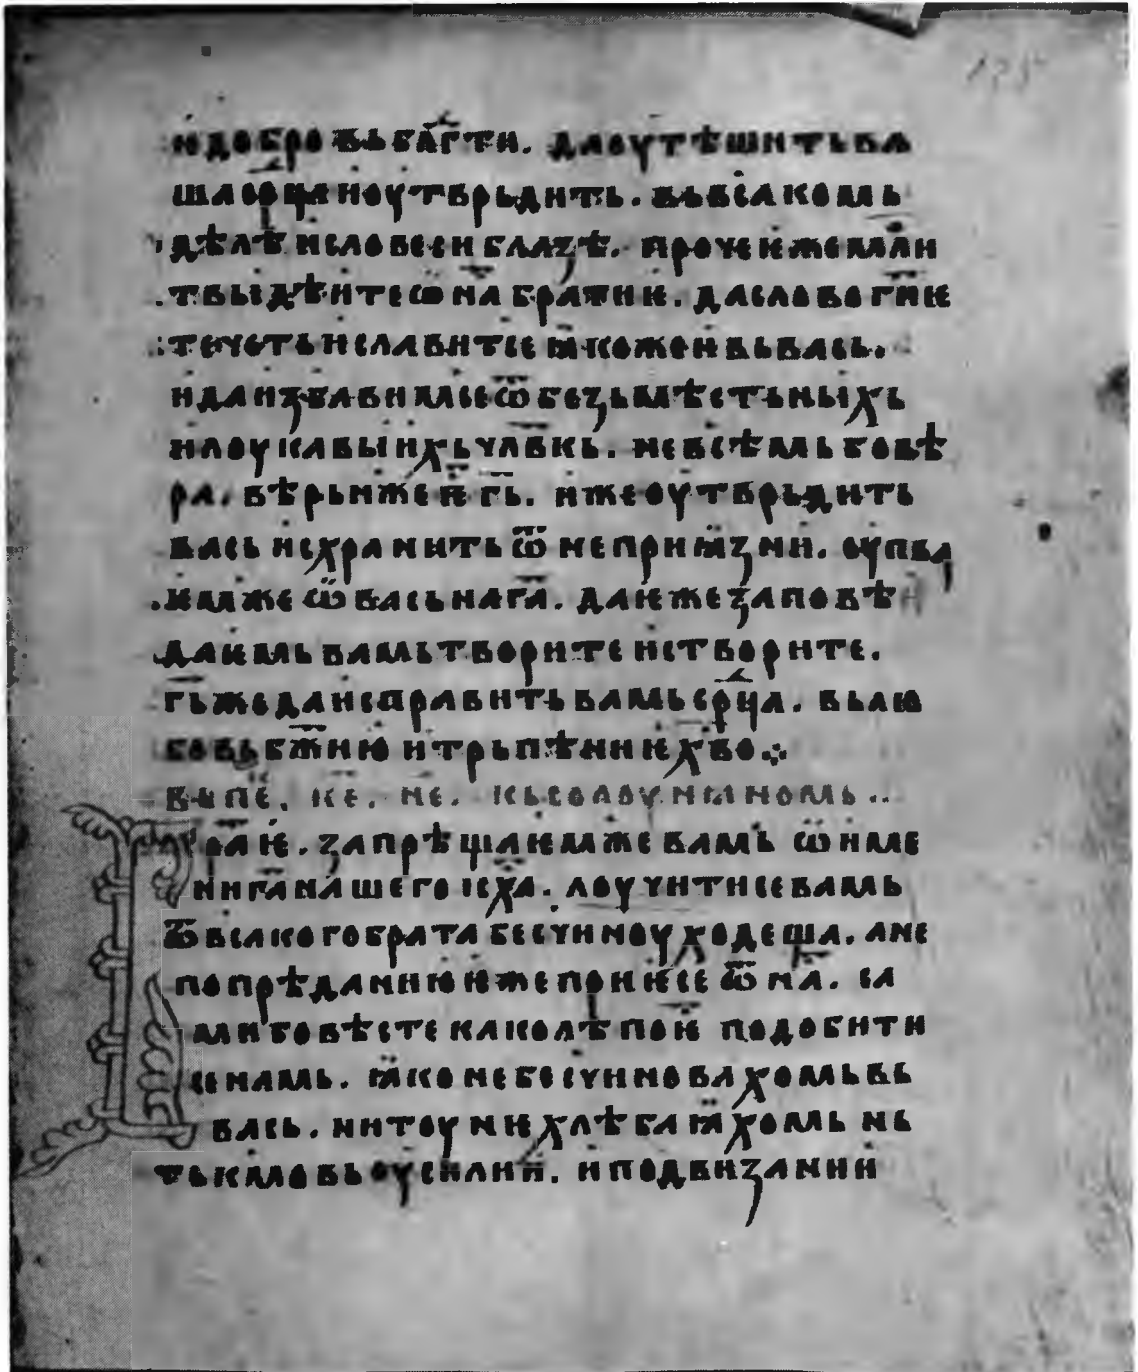 и добро вь бл҃гⷣти. да оутѣшить ва
ша ср҃ца и оутврьдить. вь всакомь
дѣлѣ и словесе и блаꙁѣ. прочеѥ же мл҃и
твы дѣите ѡ на братиѥ. да слово гн҃ѥ
течеть и славитсе ꙗкоже и вь вась.
и да иꙁбавимсе ѿ беꙁьмѣстьныхь
и лоукавыихь чл҃вкь. не всѣмь бо вѣ
ра. вѣрьнь же ѥ҃ гь҃. иже оутврьдить
вась и схранить ѿ неприꙗꙁни. оупва
ѥмже ѡ вась на га҃. да ѥже ꙁаповѣ
даѥмь вамь творите и створите.
гь҃ же да исправить вамь срⷣца. вь лю
бовь бж҃ию и трьпѣниѥ хв҃о⁘
вь пеⷣ. к҃е. не. кь солоунꙗномь..
Браⷮѥ. ꙁапрѣщаѥмже вамь ѡ име
ни га҃ нашего іс҃ х҃а. лоучитисе вамь
ѿ всакого брата бесчиноу ходеща. а не
по прѣданию ѥже приѥсе ѿ на. са
ми бо вѣсте како лѣпоѥ҃ подобити
се намь. ꙗко не бесчиновахомь вь
вась. ни тоунѥ хлѣба ꙗхомь нь
тькмо вь оусилии. и подвиꙁании